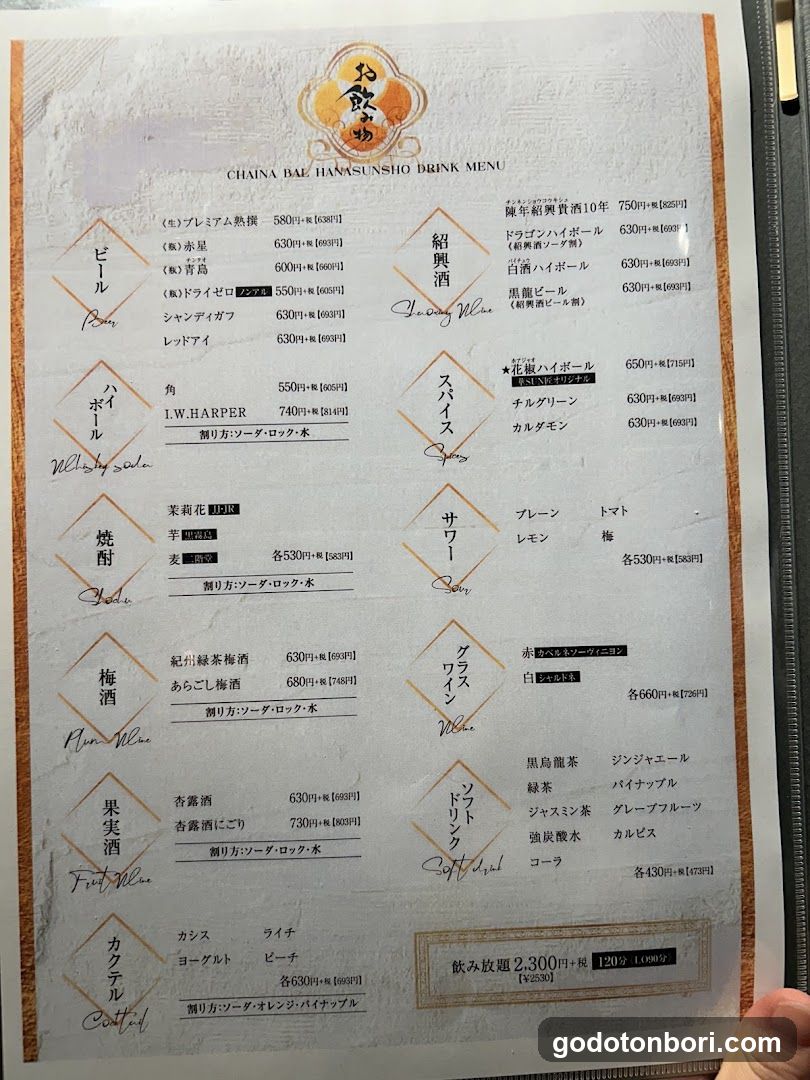 お飲み物
CHAINA BAL HANASUNSHO DRINK MENU
ビール
Beer
《生》プレミアム熟撰 580円+税【638円】
《瓶》赤星 630円+税【693円】
チンタオ
《瓶》青島 600円+税【660円】
《瓶》ドライゼロ ノンアル 550円+税【605円】
シャンディガフ 630円+税【693円】
レッドアイ 630円+税【693円】
ハイボール
Whiskey soda
角 550円+税【605円】
I.W.HARPER 740円+税【814円】
割り方:ソーダ・ロック・水
焼酎
Shochu
茉莉花 JJ・JR
芋 黒霧島
麦 二階堂 各530円+税【583円】
割り方:ソーダ・ロック・水
梅酒
Plum Wine
紀州緑茶梅酒 630円+税【693円】
あらごし梅酒 680円+税【748円】
割り方:ソーダ・ロック・水
果実酒
Fruit Wine
杏露酒 630円+税【693円】
杏露酒にごり 730円+税【803円】
割り方:ソーダ・ロック・水
カクテル
Cocktail
カシス ライチ
ヨーグルト ピーチ
各630円+税【693円】
割り方:ソーダ・オレンジ・パイナップル
紹興酒
Wine
チンネンショウコウキシュ
陳年紹興貴酒10年 750円+税【825円】
ドラゴンハイボール 630円+税【693円】
《紹興酒ソーダ割》
パイチュウ
白酒ハイボール 630円+税【693円】
黒龍ビール 630円+税【693円】
《紹興酒ビール割》
スパイス
Spices
ホアジャオ
★花椒ハイボール 650円+税【715円】
華SUN匠オリジナル
チルグリーン 630円+税【693円】
カルダモン 630円+税【693円】
サワー
Sour
プレーン トマト
レモン 梅
各530円+税【583円】
グラスワイン
Wine
赤 カベルネソーヴィニヨン
白 シャルドネ
各660円+税【726円】
ソフトドリンク
Soft drink
黒烏龍茶 ジンジャエール
緑茶 パイナップル
ジャスミン茶 グレープフルーツ
強炭酸水 カルピス
コーラ
各430円+税【473円】
飲み放題2,300円+税 120分(LO90分)
【¥2530】
godotonbori.com